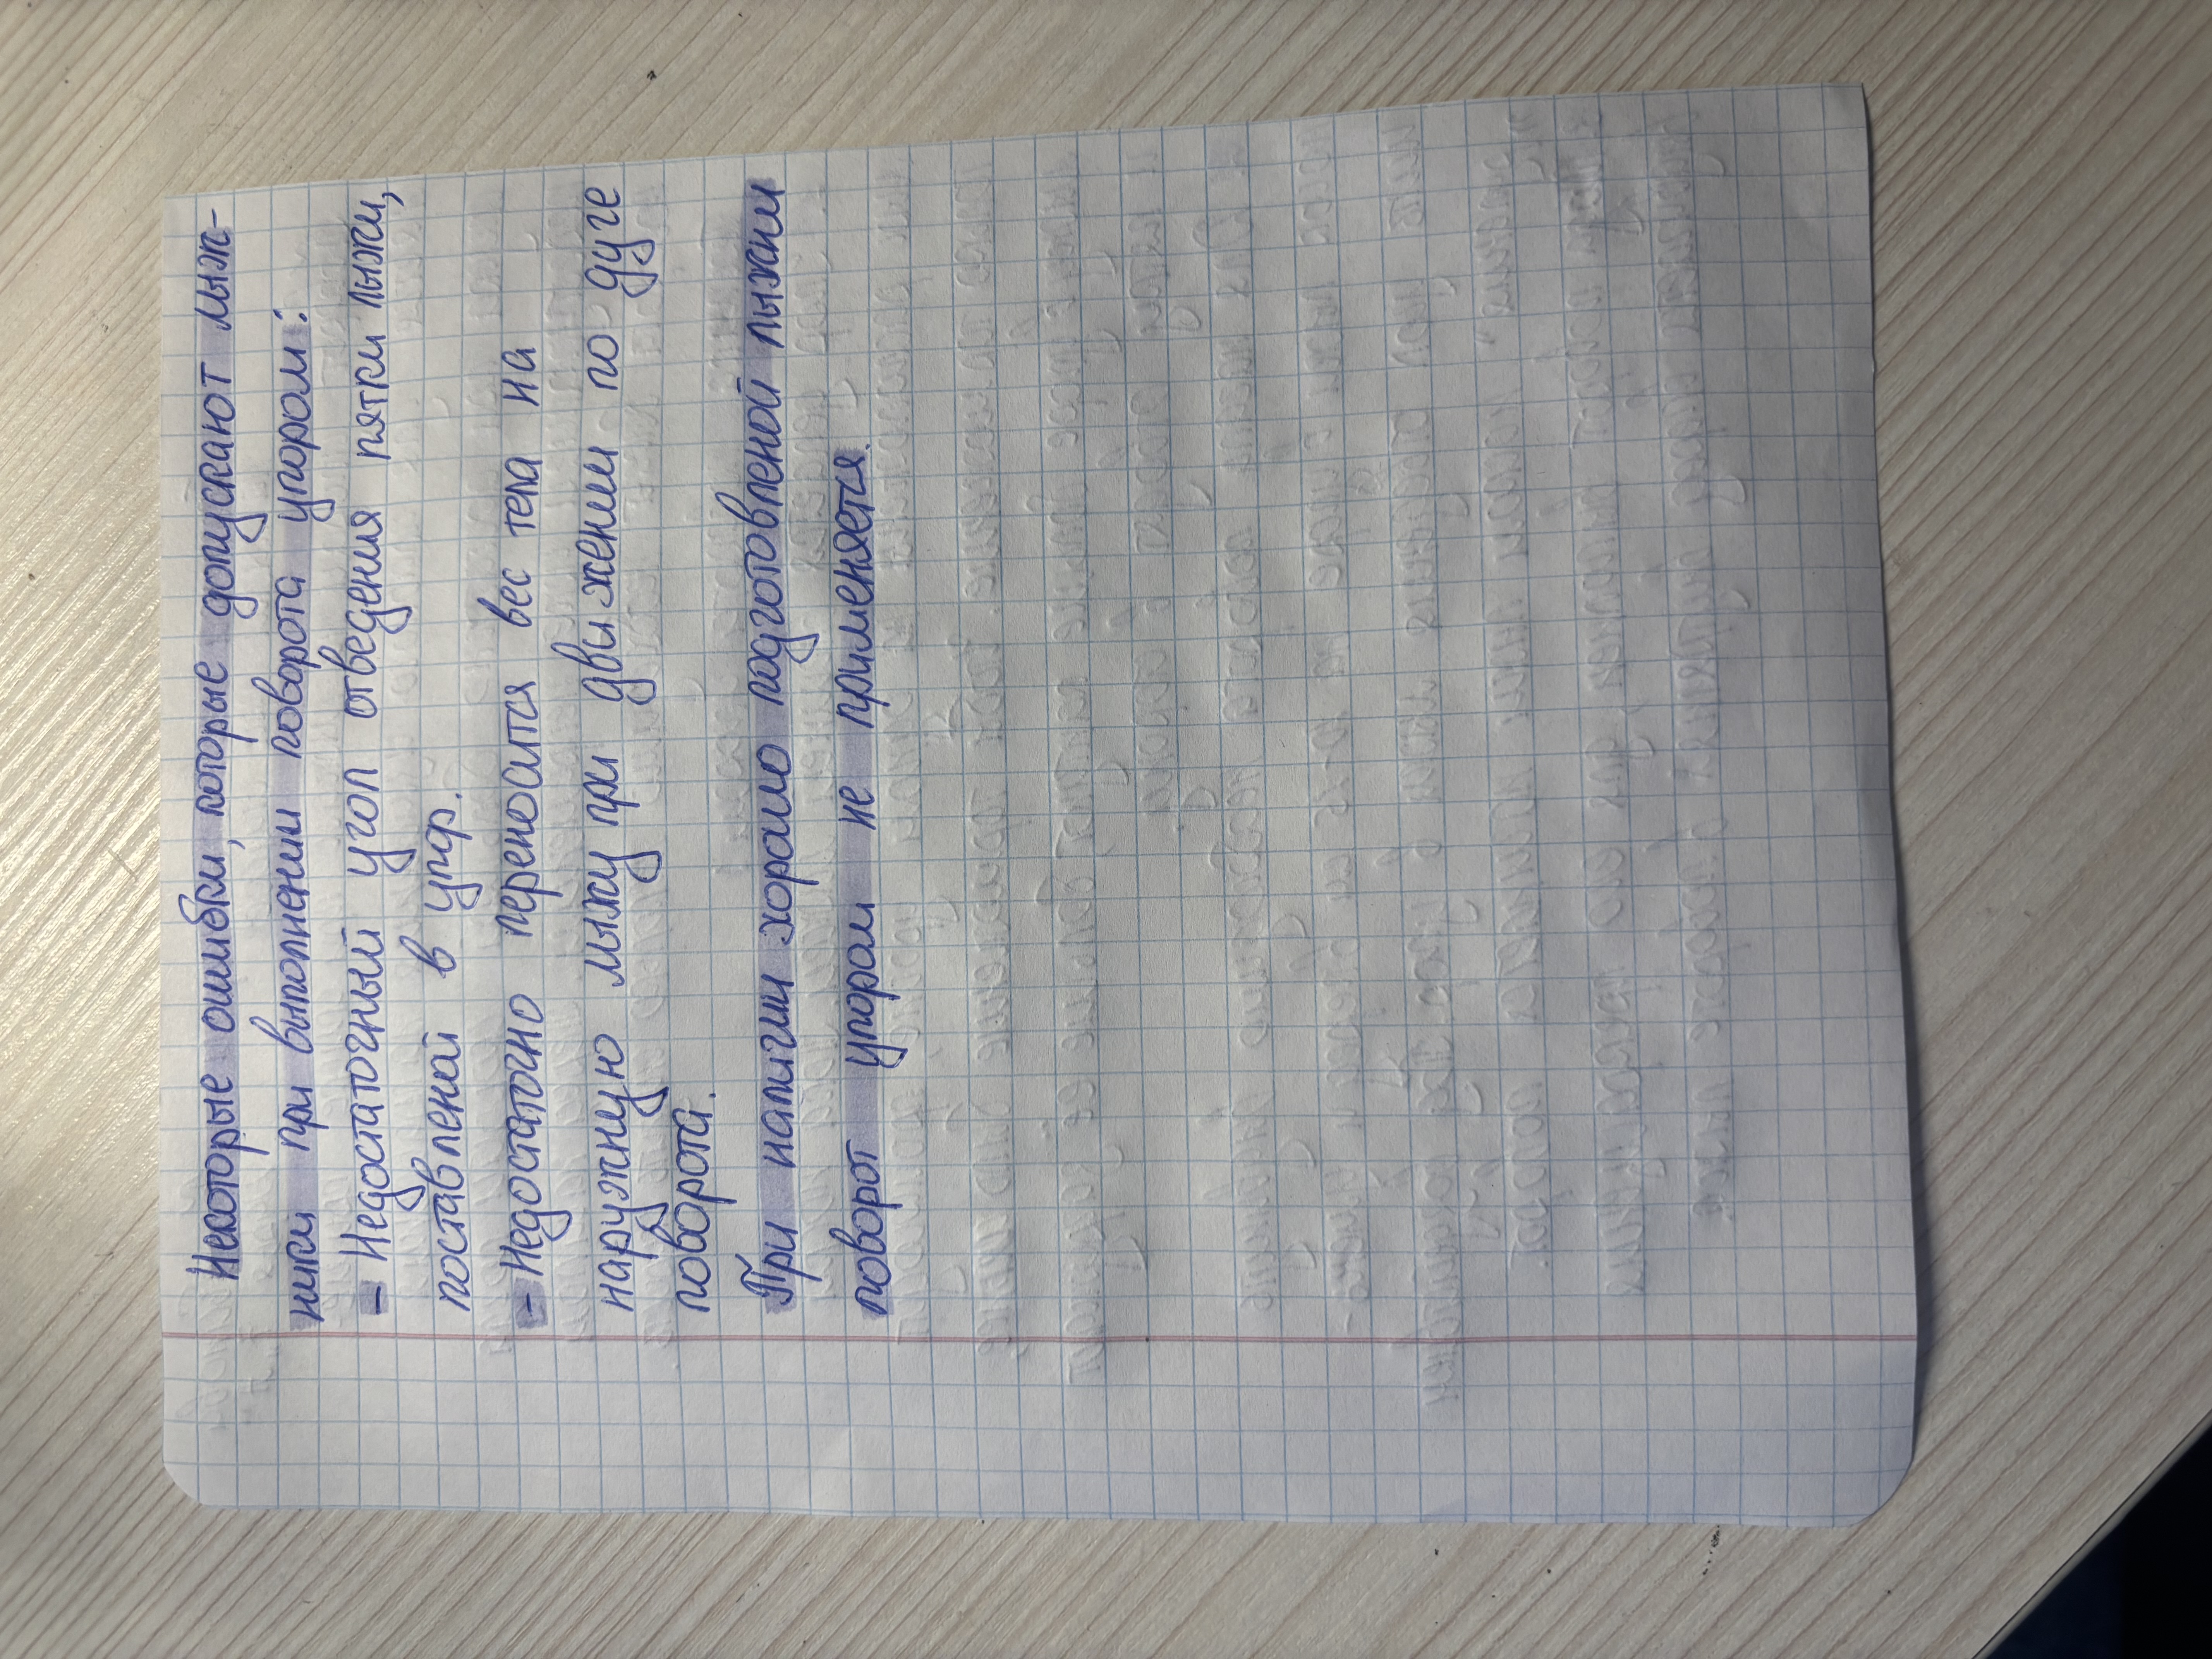 Некоторые ошибки, которые допускают лыж-
ники при выполнении поворота упором:
- Недостаточный угол отведения пятки лыжи,
поставленой в упор.
- Недостаточно переносится вес тела на
наружную лыжу при движении по дуге
поворота.
При наличии хорошо подготовленой лыжни
поворот упором не применяется.